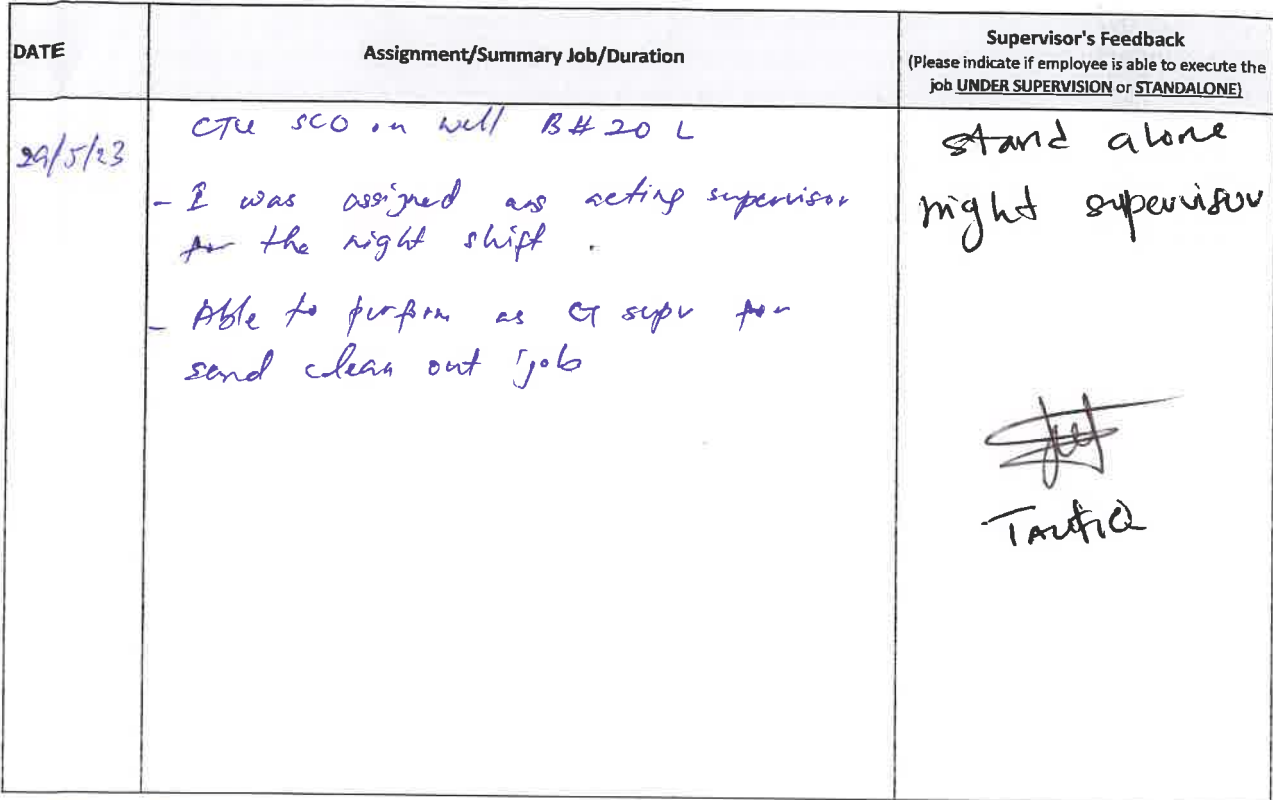 DATE
Assignment/Summary Job/Duration
Supervisor's Feedback
(Please indicate if employee is able to execute the
job UNDER SUPERVISION or STANDALONE)
29/5/23
CTU SCO on well B#20 L
- I was assigned as acting supervisor
for the night shift.
- Able to perform as CT supv for
sand clean out job
stand alone
night supervisor
TAUFIQ